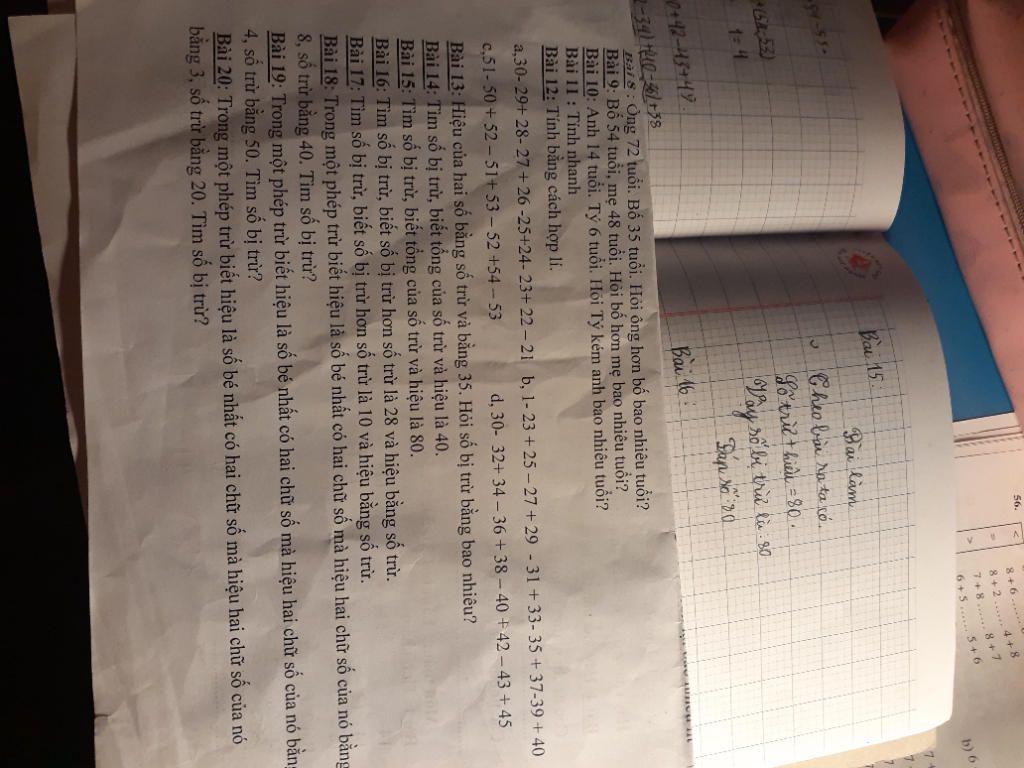 Bài 8 : Ông 72 tuổi. Bố 35 tuổi. Hỏi ông hơn bố bao nhiêu tuổi?
Bài 9: Bố 54 tuổi, mẹ 48 tuổi. Hỏi bố hơn mẹ bao nhiêu tuổi?
Bài 10: Anh 14 tuổi. Tý 6 tuổi. Hỏi Tý kém anh bao nhiêu tuổi?
Bài 11 : Tính nhanh
Bài 12: Tính bằng cách hợp lí.
a,30-29+ 28- 27 + 26 -25+24- 23+ 22 – 21 b, 1- 23 + 25 – 27 + 29 - 31 + 33- 35 + 37-39 + 40
c,51- 50 + 52 – 51+ 53 – 52 +54 – 53 d,30- 32+ 34 – 36 + 38 – 40 + 42 – 43 + 45
Bài 13: Hiệu của hai số bằng số trừ và bằng 35. Hỏi số bị trừ bằng bao nhiêu?
Bài 14: Tìm số bị trừ, biết tổng của số trừ và hiệu là 40.
Bài 15: Tìm số bị trừ, biết tổng của số trừ và hiệu là 80.
Bài 16: Tìm số bị trừ, biết số bị trừ hơn số trừ là 28 và hiệu bằng số trừ.
Bài 17: Tìm số bị trừ, biết số bị trừ hơn số trừ là 10 và hiệu bằng số trừ.
Bài 18: Trong một phép trừ biết hiệu là số bé nhất có hai chữ số mà hiệu hai chữ số của nó bằng
8, số trừ bằng 40. Tìm số bị trừ?
Bài 19: Trong một phép trừ biết hiệu là số bé nhất có hai chữ số mà hiệu hai chữ số của nó bằng
4, số trừ bằng 50. Tìm số bị trừ?
Bài 20: Trong một phép trừ biết hiệu là số bé nhất có hai chữ số mà hiệu hai chữ số của nó
bằng 3, số trừ bằng 20. Tìm số bị trừ?
Bài 15:
Bài làm
Theo bài ra ta có
Số trừ + hiệu = 80.
Vậy số bị trừ là: 80
Đáp số: 80
Bài 16:
1 = 4
56.
<
=
>
8 + 6 ....... 4 + 8
8 + 2 ....... 8 + 7
7 + 8 .......
6 + 5 ....... 5 + 6
b) 6